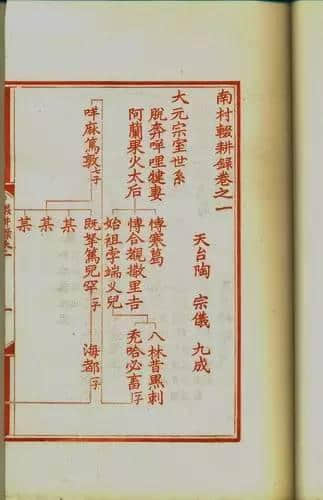 南村輟耕錄卷之一
天台陶 宗儀 九成
大元宗室世系
脫奔咩哩犍妻
阿蘭果火太后
博寒葛
博合覩撒里吉
始祖孛端叉兒
八林昔黑剌
禿哈必畜一子
咩麻篤敦七子
既拏篤兒罕一子
海都
某
某
某